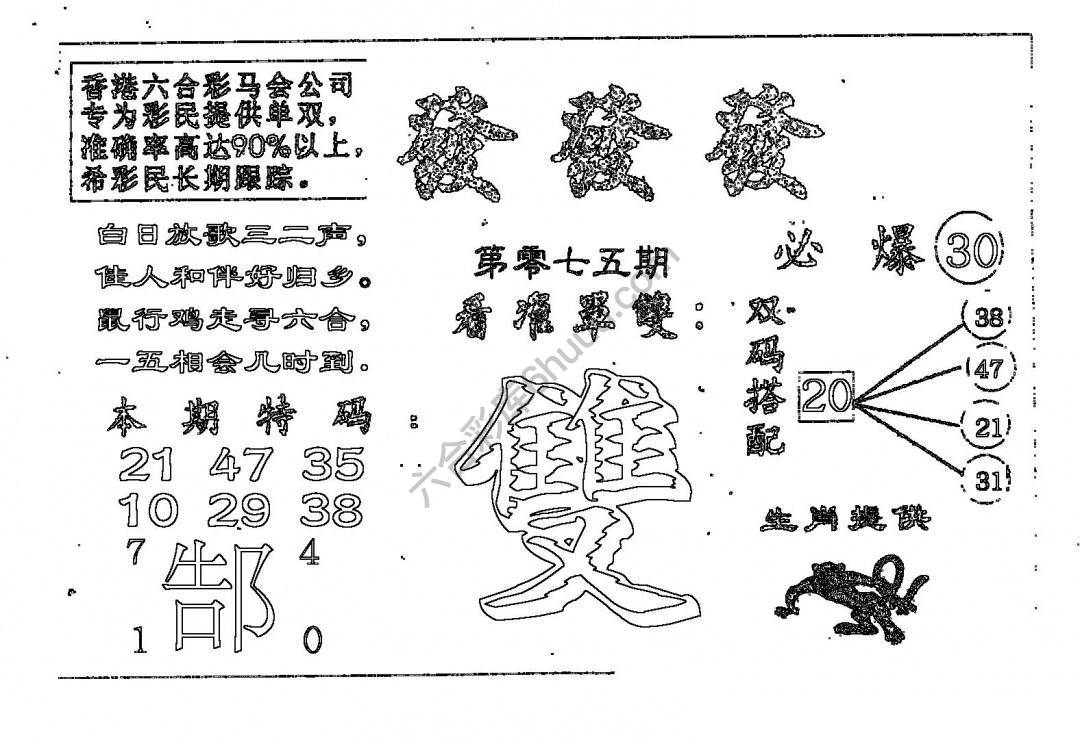 香港六合彩马会公司
专为彩民提供单双，
准确率高达90%以上，
希彩民长期跟踪。
發 發 發
白日放歌三二声，
佳人和伴好归乡。
鼠行鸡走寻六合，
一五相会几时到.
第零七五期
看准單雙：
雙
必爆 30
双码搭配
20
38
47
21
31
本期特码：
21 47 35
10 29 38
7 4
郜
1 0
生肖提供
六合彩库6huu6.com